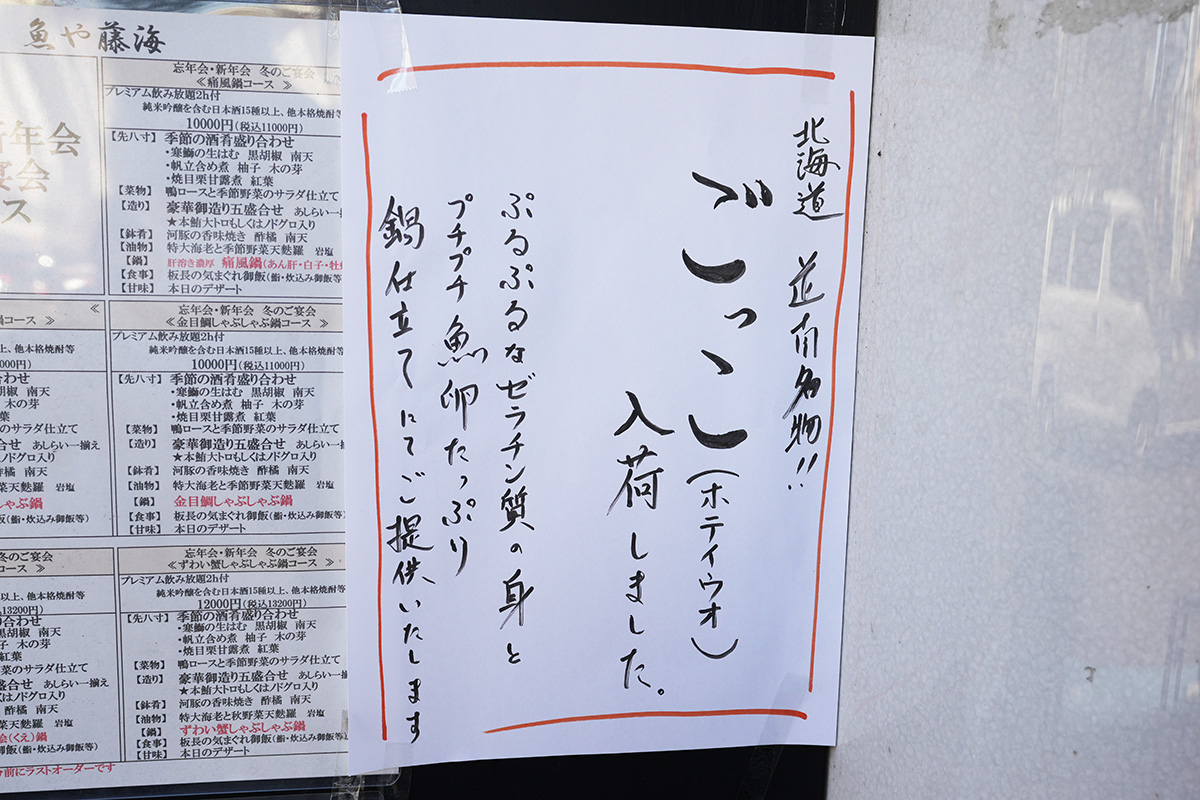 北海道 道南名物!!
ごっこ(ホテイウオ)
入荷しました。
ぷるぷるなゼラチン質の身と
プチプチ魚卵たっぷり
鍋仕立てにてご提供いたします
魚や藤海
新年会
宴会
ス
忘年会・新年会 冬のご宴会
≪痛風鍋コース ≫
プレミアム飲み放題2h付
純米吟醸を含む日本酒15種以上、他本格焼酎等
10000円(税込11000円)
【先八寸】 季節の酒肴盛り合わせ
・寒鰤の生はむ 黒胡椒 南天
・帆立含め煮 柚子 木の芽
・焼目栗甘露煮 紅葉
【菜物】 鴨ロースと季節野菜のサラダ仕立て
【造り】 豪華御造り五盛合せ あしらい一揃
★本鮪大トロもしくはノドグロ入り
【鉢肴】 河豚の香味焼き 酢橘 南天
【油物】 特大海老と季節野菜天麩羅 岩塩
【鍋】 肝溶き濃厚 痛風鍋(あん肝・白子・牡蠣
【食事】 板長の気まぐれ御飯(鮨・炊込み御飯等
【甘味】 本日のデザート
忘年会・新年会 冬のご宴会
≪金目鯛しゃぶしゃぶ鍋コース ≫
プレミアム飲み放題2h付
純米吟醸を含む日本酒15種以上、他本格焼酎等
10000円(税込11000円)
【先八寸】 季節の酒肴盛り合わせ
・寒鰤の生はむ 黒胡椒 南天
・帆立含め煮 柚子 木の芽
・焼目栗甘露煮 紅葉
【菜物】 鴨ロースと季節野菜のサラダ仕立て
【造り】 豪華御造り五盛合せ あしらい一
★本鮪大トロもしくはノドグロ入り
【鉢肴】 河豚の香味焼き 酢橘 南天
【油物】 特大海老と季節野菜天麩羅 岩塩
【鍋】 金目鯛しゃぶしゃぶ鍋
【食事】 板長の気まぐれ御飯(鮨・炊込み御飯等)
【甘味】 本日のデザート
忘年会・新年会 冬のご宴会
≪ずわい蟹しゃぶしゃぶ鍋コース ≫
プレミアム飲み放題2h付
純米吟醸を含む日本酒15種以上、他本格焼酎等
12000円(税込13200円)
【先八寸】 季節の酒肴盛り合わせ
・寒鰤の生はむ 黒胡椒 南天
・帆立含め煮 柚子 木の芽
・焼目栗甘露煮 紅葉
【菜物】 鴨ロースと季節野菜のサラダ仕立て
【造り】 豪華御造り五盛合せ あしらい一
★本鮪大トロもしくはノドグロ入り
【鉢肴】 河豚の香味焼き 酢橘 南天
【油物】 特大海老と秋野菜天麩羅 岩塩
【鍋】 ずわい蟹しゃぶしゃぶ鍋
【食事】 板長の気まぐれ御飯(鮨・炊込み御飯等)
【甘味】 本日のデザート
分前にラストオーダーです